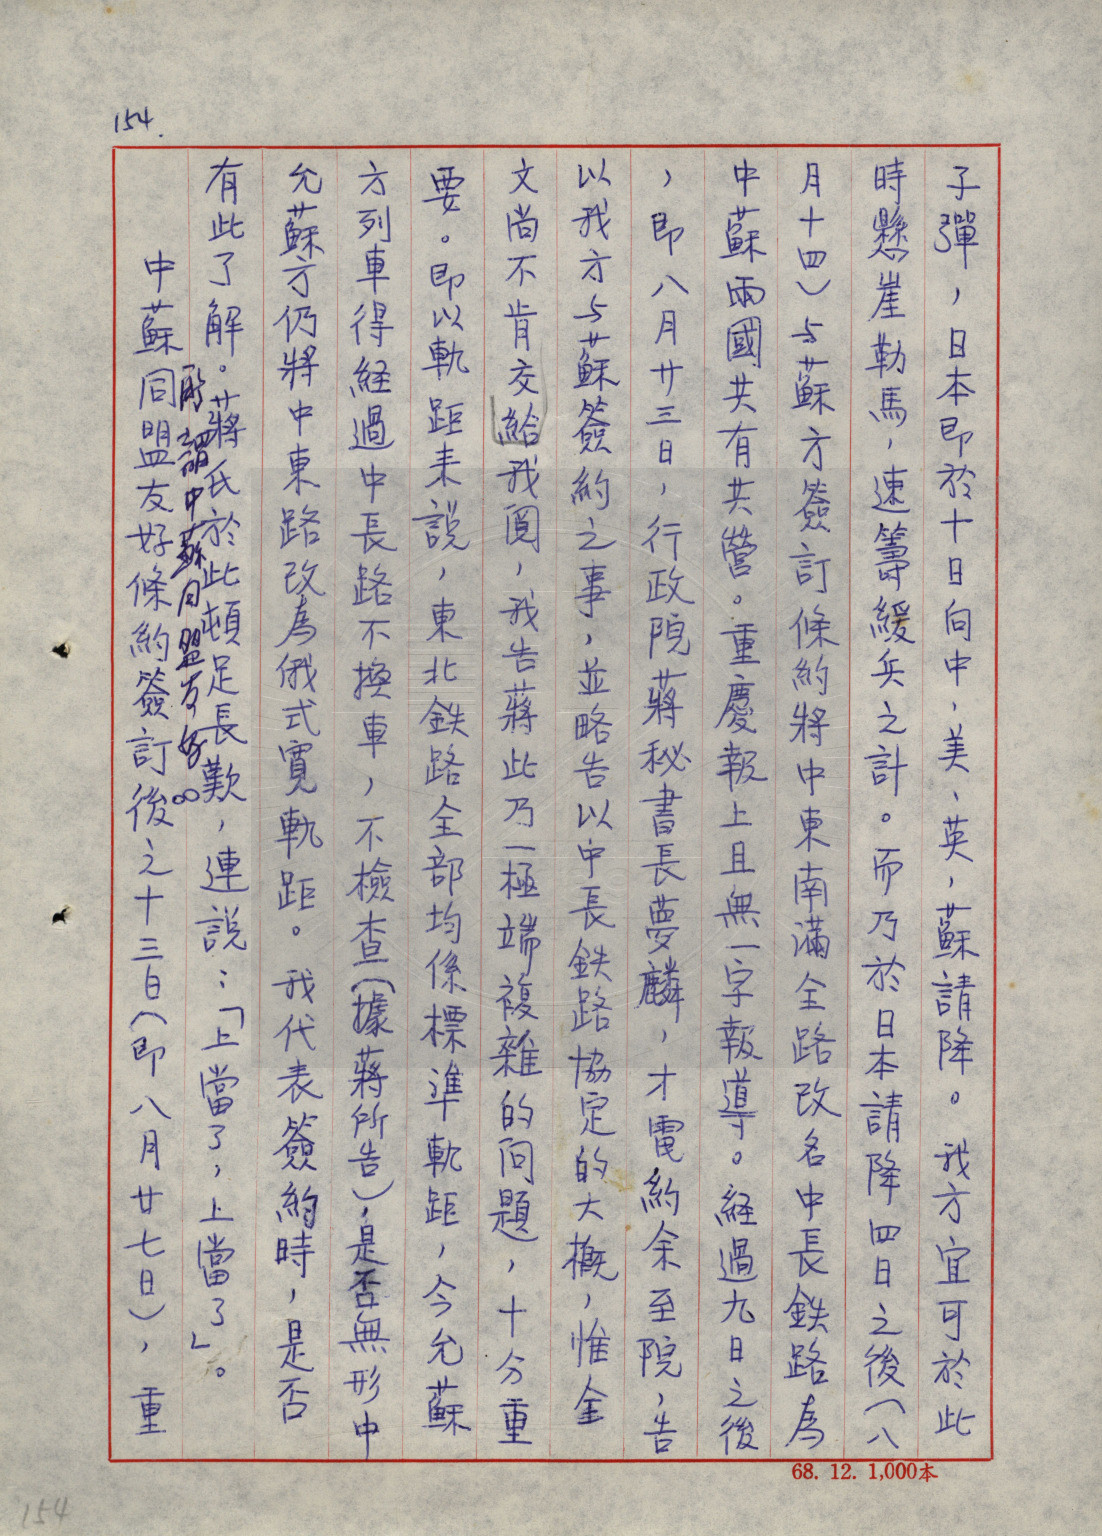 154.
子彈，日本即於十日向中、美、英、蘇請降。我方宜可於此
時懸崖勒馬，速籌緩兵之計。而乃於日本請降四日之後（八
月十四）与蘇方簽訂條約將中東南滿全路改名中長鉄路為
中蘇兩國共有共營。重慶報上且無一字報導。経過九日之後
，即八月廿三日，行政院蔣秘書長夢麟，才電約余至院，告
以我方与蘇簽約之事，並略告以中長鉄路協定的大概，惟全
文尚不肯交給我閲，我告蔣此乃一極端複雜的问題，十分重
要。即以軌距来説，東北鉄路全部均係標準軌距，今允蘇
方列車得経過中長路不換車，不檢查（據蔣所告），是否無形中
允蘇方仍將中東路改為俄式寬軌距。我代表簽約時，是否
有此了解。蔣氏於此頓足長歎，連説：「上當了，上當了」。
所謂中蘇同盟友好
中蘇同盟友好條約簽訂後之十三日（即八月廿七日），重
68. 12. 1,000本
154